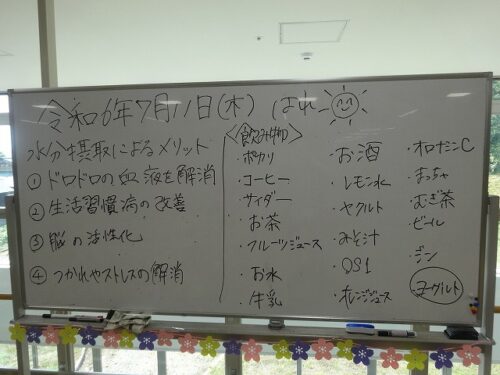 令和6年7月11日(木) はれ
水分摂取によるメリット
① ドロドロの血液を解消
② 生活習慣病の改善
③ 脳の活性化
④ つかれやストレスの解消
<飲み物>
・ポカリ
・コーヒー
・サイダー
・お茶
・フルーツジュース
・お水
・牛乳
・お酒
・レモン水
・ヤクルト
・みそ汁
・OS1
・オレンジジュース
・オロナミンC
・まっちゃ
・むぎ茶
・ビール
・ジン
ヨーグルト